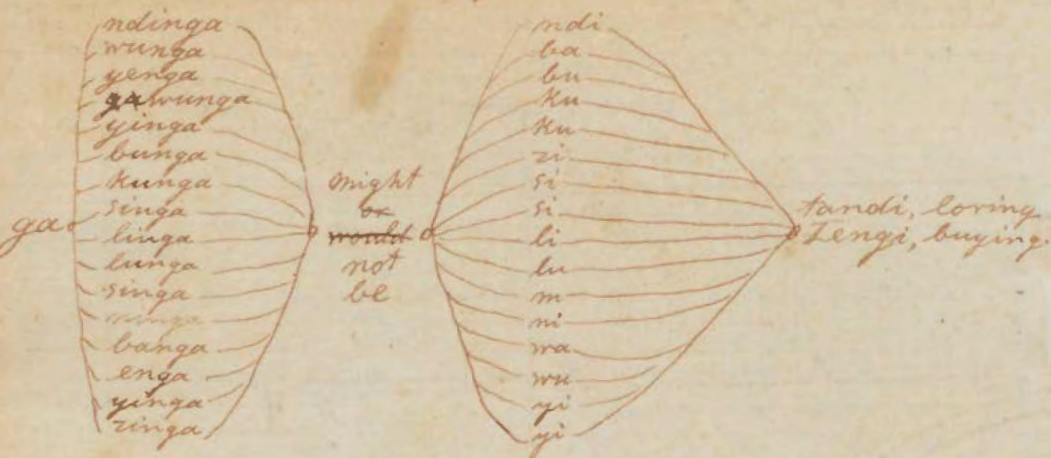 ndinga
wunga
yenga
gawunga
yinga
bunga
kunga
singa
linga
lunga
singa
banga
enga
yinga
zinga
ga
might
or
would
not
be
ndi
ba
bu
ku
ku
zi
si
si
li
lu
m
ni
wa
wu
yi
yi
tandi, loving
Tengi, buying.